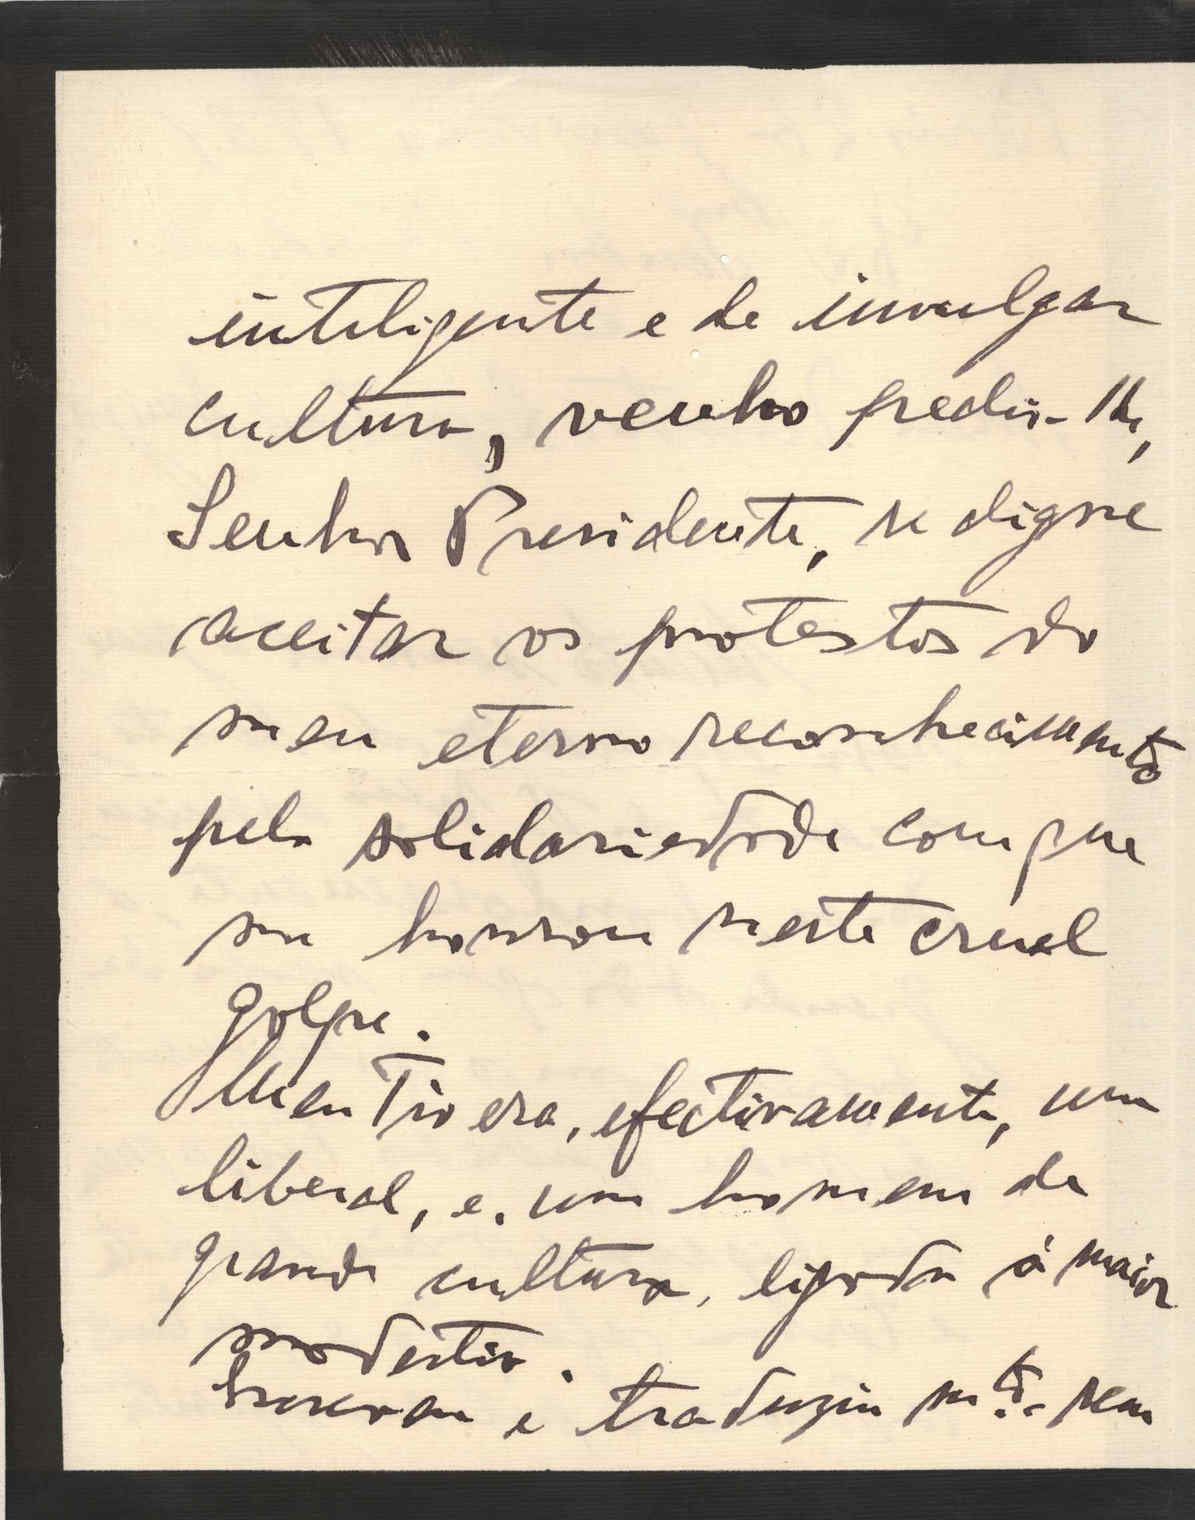 inteligente e de invulgar
cultura, venho pedir-lhe,
Senhor Presidente, se digne
aceitar os protestos do
meu eterno reconhecimento
pela solidariedade com que
me honrou neste cruel
golpe.
Meu Tio era, efectivamente, um
liberal, e, um homem de
grande cultura, ligada á maior
modestia.
Escreveu e traduziu mto. sem